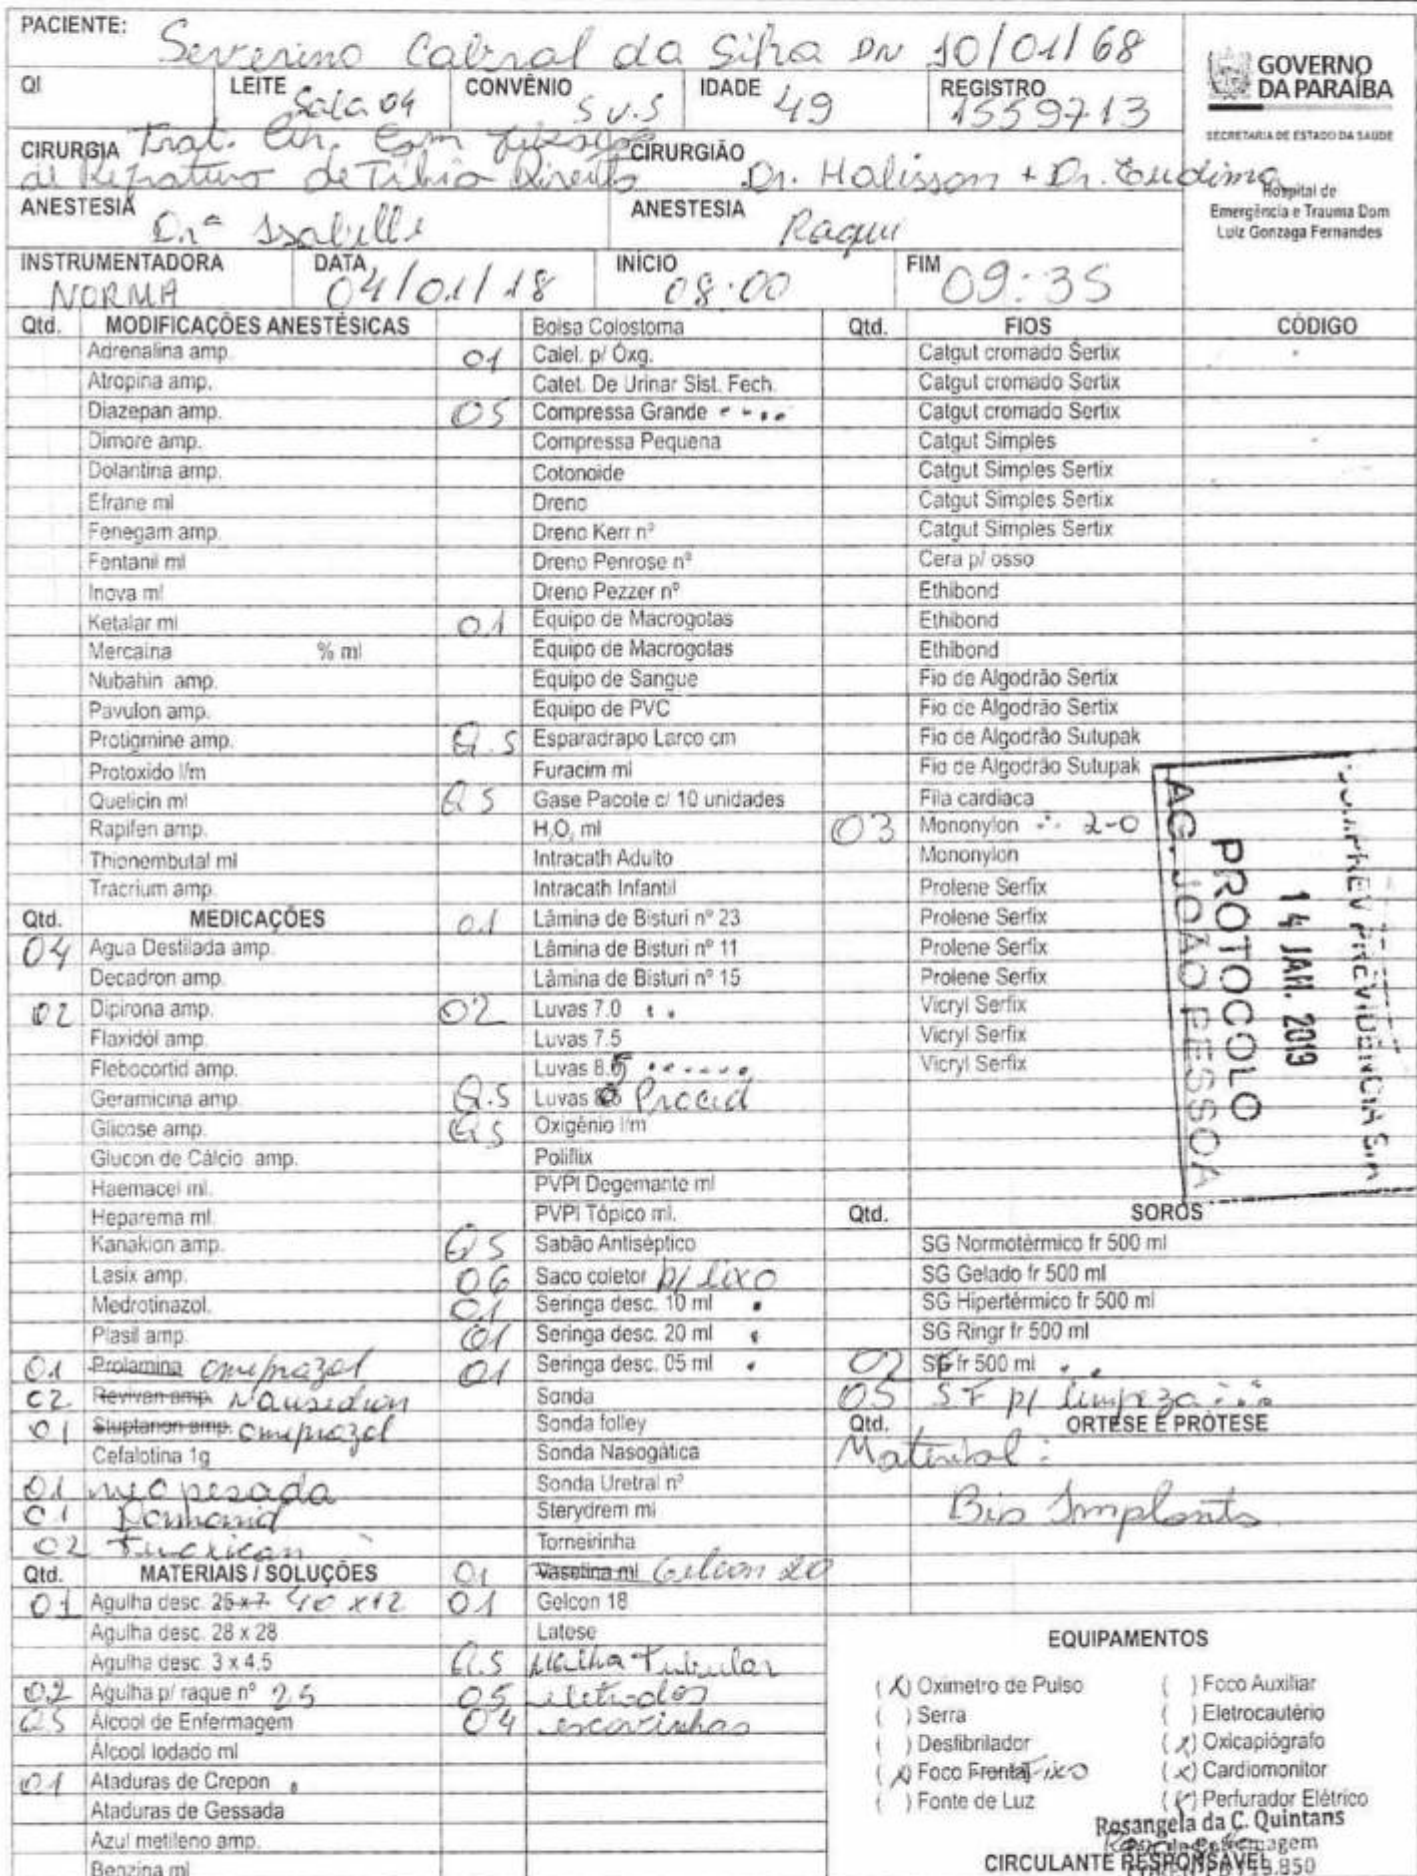 PACIENTE: Severino Cabral da Silva DN 10/01/68
GOVERNO DA PARAÍBA
SECRETARIA DE ESTADO DA SAÚDE
Hospital de Emergência e Trauma Dom Luiz Gonzaga Fernandes
QI LEITE Sala 04 CONVÊNIO SUS IDADE 49 REGISTRO 1559713
CIRURGIA Trat. Cir. Com
de Tibia Direito
CIRURGIÃO Dr. Halisson + Dr.
ANESTESIA Drª Isabelle ANESTESIA Raqui
INSTRUMENTADORA NORMA DATA 04/01/18 INÍCIO 08:00 FIM 09:35
Qtd. MODIFICAÇÕES ANESTÉSICAS
Adrenalina amp.
Atropina amp.
Diazepan amp.
Dimore amp.
Dolantina amp.
Efrane ml
Fenegam amp.
Fentanil ml
Inova ml
Ketalar ml
Mercaina % ml
Nubahin amp.
Pavulon amp.
Protigmine amp.
Protoxido l/m
Quelicin ml
Rapifen amp.
Thionembutal ml
Tracrium amp.
Qtd. MEDICAÇÕES
04 Agua Destilada amp.
Decadron amp.
02 Dipirona amp.
Flaxidól amp.
Flebocortid amp.
Geramicina amp.
Glicose amp.
Glucon de Cálcio amp.
Haemacel ml.
Heparema ml.
Kanakion amp.
Lasix amp.
Medrotinazol.
Plasil amp.
01 Prolamina omeprazol
02 Revivan amp. Nausedron
01 Stuptanon amp. omeprazol
Cefalotina 1g
01 neo pesada
01
02
Qtd. MATERIAIS / SOLUÇÕES
01 Agulha desc. 25 x 7 40 x 12
Agulha desc. 28 x 28
Agulha desc. 3 x 4.5
02 Agulha p/ raque nº 25
QS Álcool de Enfermagem
Álcool Iodado ml
01 Ataduras de Crepon
Ataduras de Gessada
Azul metileno amp.
Benzina ml
Bolsa Colostoma
01 Catel. p/ Óxg.
Catet. De Urinar Sist. Fech.
05 Compressa Grande
Compressa Pequena
Cotonoide
Dreno
Dreno Kerr nº
Dreno Penrose nº
Dreno Pezzer nº
01 Equipo de Macrogotas
Equipo de Macrogotas
Equipo de Sangue
Equipo de PVC
Q.S Esparadrapo Larco cm
Furacim ml
QS Gase Pacote c/ 10 unidades
H₂O₂ ml
Intracath Adulto
Intracath Infantil
01 Lâmina de Bisturi nº 23
Lâmina de Bisturi nº 11
Lâmina de Bisturi nº 15
02 Luvas 7.0
Luvas 7.5
Luvas 8.5
Q.S Luvas Proced
QS Oxigênio l/m
Poliflix
PVPI Degemante ml
PVPI Tópico ml.
QS Sabão Antiséptico
06 Saco coletor p/ lixo
01 Seringa desc. 10 ml
01 Seringa desc. 20 ml
01 Seringa desc. 05 ml
Sonda
Sonda folley
Sonda Nasogática
Sonda Uretral nº
Sterydrem ml
Torneirinha
01 Vaselina ml Gelcon 20
01 Gelcon 18
Latese
Q.S Malha Tubular
05 eletrodos
04 escovinhas
Qtd. FIOS CÓDIGO
Catgut cromado Sertix
Catgut cromado Sertix
Catgut cromado Sertix
Catgut Simples
Catgut Simples Sertix
Catgut Simples Sertix
Catgut Simples Sertix
Cera p/ osso
Ethibond
Ethibond
Ethibond
Fio de Algodrão Sertix
Fio de Algodrão Sertix
Fio de Algodrão Sutupak
Fio de Algodrão Sutupak
Fila cardiaca
03 Mononylon 2-0
Mononylon
Prolene Serfix
Prolene Serfix
Prolene Serfix
Prolene Serfix
Vicryl Serfix
Vicryl Serfix
Vicryl Serfix
PREVIDÊNCIA S/A
14 JAN. 2019
PROTOCOLO
AG. JOÃO PESSOA
Qtd. SOROS
SG Normotèrmico fr 500 ml
SG Gelado fr 500 ml
SG Hipertérmico fr 500 ml
SG Ringr fr 500 ml
02 SF fr 500 ml
05 SF p/ limpeza
Qtd. ORTESE E PRÓTESE
Material:
Bio Implants
EQUIPAMENTOS
(X) Oximetro de Pulso ( ) Foco Auxiliar
( ) Serra ( ) Eletrocautério
( ) Desfibrilador (x) Oxicapiógrafo
(X) Foco Frontal Fixo (x) Cardiomonitor
( ) Fonte de Luz ( ) Perfurador Elétrico
Rosangela da C. Quintans
CIRCULANTE RESPONSÁVEL